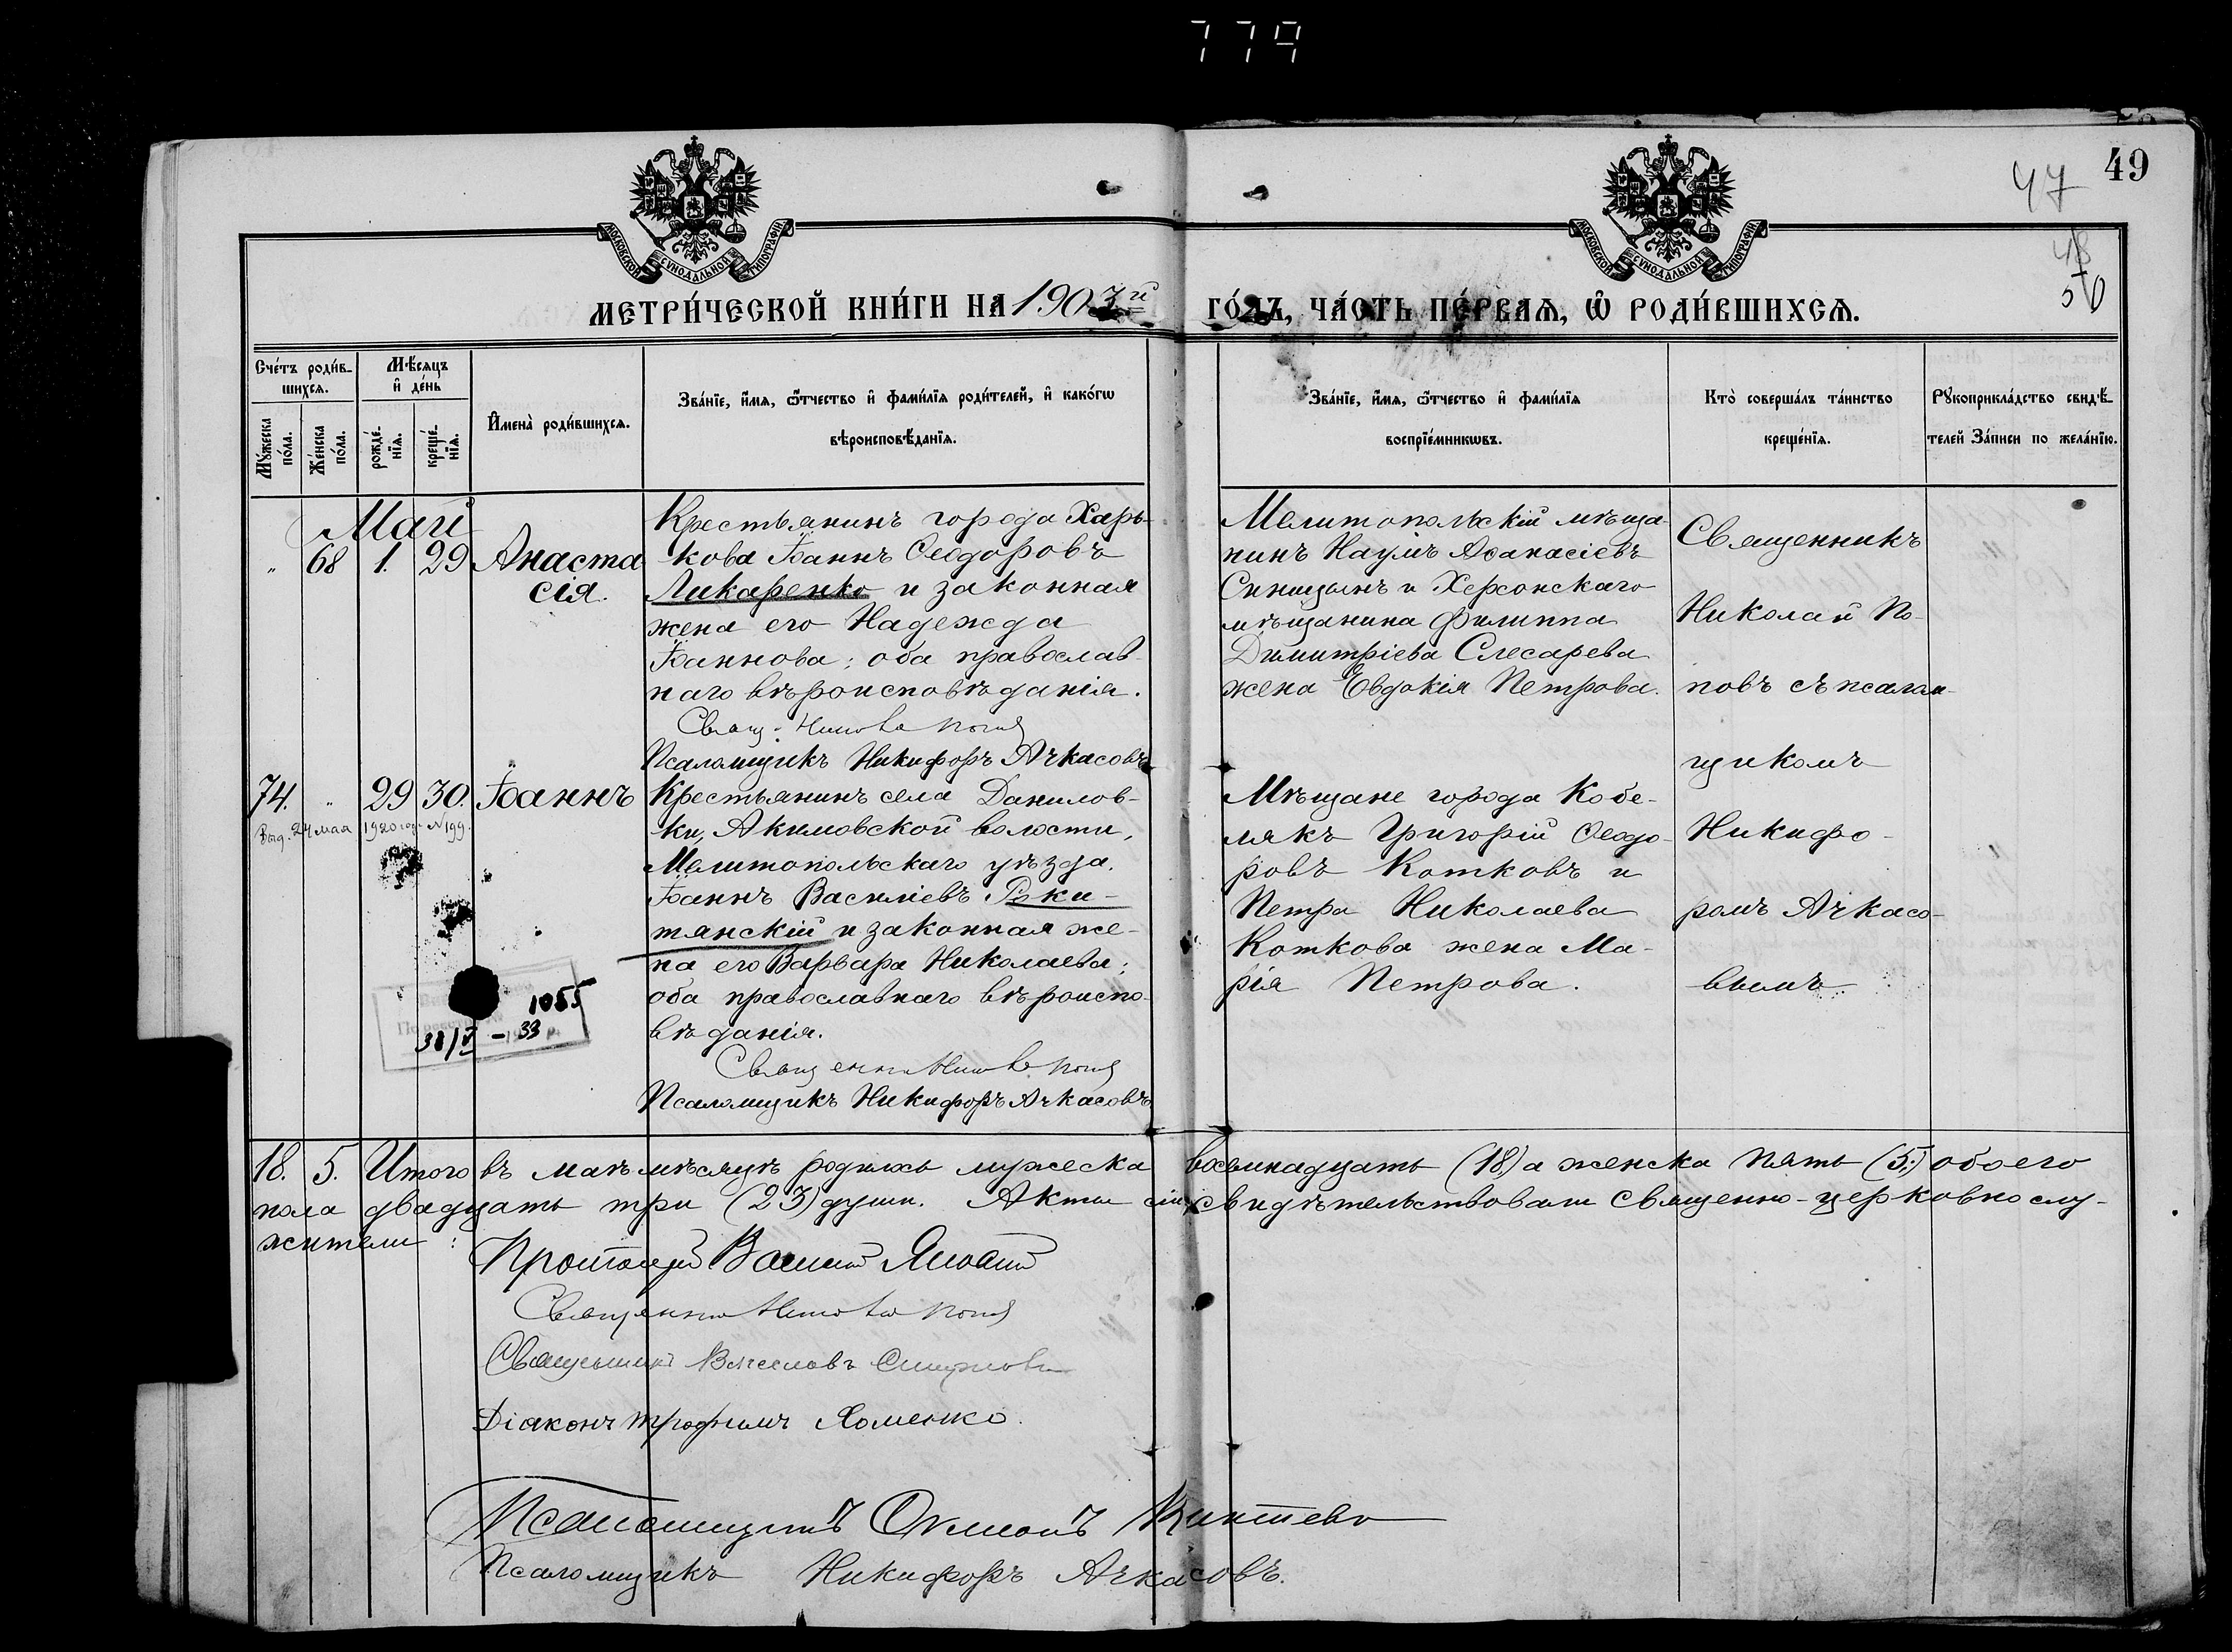 779
49
47
48
50
МОСКОВСКОЙ СѴНОДАЛЬНОЙ ТИПОГРАФІИ
МОСКОВСКОЙ СѴНОДАЛЬНОЙ ТИПОГРАФІИ
МЕТРИ́ЧЕСКОЙ КНИ́ГИ НА 1903й ГО́ДЪ, ЧА́СТЬ ПЕ́РВАѦ, Ѿ РОДИ́ВШИХСѦ.
Сче́тъ роди́в-
шихсѧ.
Мꙋ́жеска по́ла.
Же́нска по́ла.
Мѣ́сѧцъ
и҆ де́нь
рожде́-
нїѧ.
креще́-
нїѧ.
И҆мена̀ роди́вшихсѧ.
Зва́нїе, и҆́мѧ, ѻ҆́тчество и҆ фами́лїѧ роди́телей, и҆ како́гѡ
вѣроисповѣ́данїѧ.
Зва́нїе, и҆́мѧ, ѻ҆́тчество и҆ фами́лїѧ
воспрїе́мникѡвъ.
Кто̀ соверша́лъ та́инство
креще́нїѧ.
Рꙋкоприкла́дство свидѣ́-
телей За́писи по жела́нїю.
Май
" 68 1. 29 Анаста
сія.
Крестьянинъ города Харь-
кова Іоаннъ Ѳеодоровъ
Ликаренко и законная
жена его Надежда
Іоаннова; оба православ-
наго вѣроисповѣданія.
Свящ.
Псаломщикъ Никифоръ Ачкасовъ
Мелитопольскій мѣща-
нинъ Наумъ Аѳанасіевъ
Синицынъ и Херсонскаго
мѣщанина Филиппа
Димитріева Слесарева
жена Евдокія Петрова.
Священникъ
Николай По-
повъ съ псалом-
щикомъ
Никифо-
ромъ Ачкасо-
вымъ
74. " 29 30. Іоаннъ
Выд. 24 мая 1920 год. №199.
1055
33
Крестьянинъ села Данилов-
ки, Акимовской волости,
Мелитопольскаго уѣзда.
Іоаннъ Василіевъ Раки-
тянскій и законная же-
на его Варвара Николаева;
оба православнаго вѣроиспо-
вѣданія.
Псаломщикъ Никифоръ Ачкасовъ
Мѣщане города Кобе-
лякъ Григорій Ѳеодо-
ровъ Котковъ и
Петра Николаева
Коткова жена Ма-
рія Петрова.
18. 5. Итого въ маѣ мѣсяцѣ родилось мужеска восьмнадцать (18) а женска пять (5;) обоего
пола двадцать три (23) души. Акты сіи свидѣтельствовали священно-церковнослу-
жители:
Протоіерей
Священникъ
Священникъ Вячеславъ Смирновъ
Діаконъ Трофимъ Хоменко.
Псаломщикъ
Псаломщикъ Никифоръ Ачкасовъ.